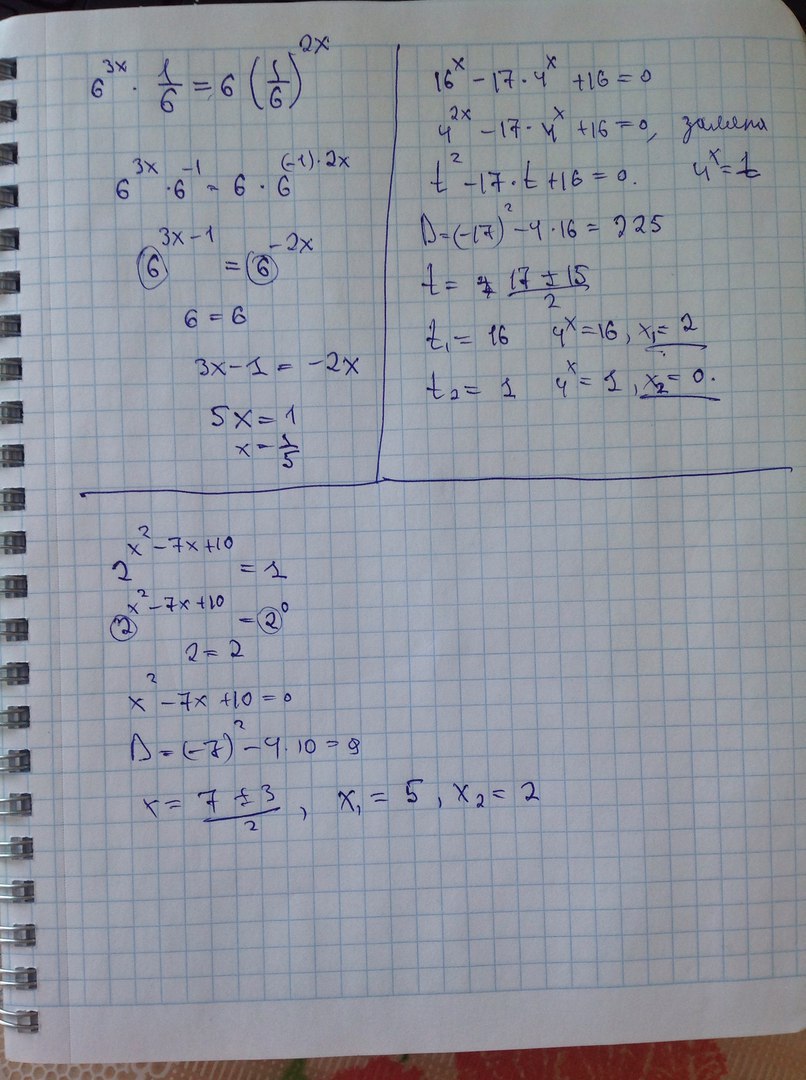 6^{3x} · \frac{1}{6} = 6 (\frac{1}{6})^{2x}
6^{3x} · 6^{-1} = 6 · 6^{(-1)·2x}
6^{3x-1} = 6^{-2x}
6 = 6
3x-1 = -2x
5x = 1
x = \frac{1}{5}
16^x - 17 · 4^x + 16 = 0
4^{2x} - 17 · 4^x + 16 = 0, замена
t^2 - 17 · t + 16 = 0. 4^x = t
D = (-17)^2 - 4 · 16 = 225
t = \frac{17 ± 15}{2}
t_1 = 16 4^x = 16, x_1 = 2
t_2 = 1 4^x = 1, x_2 = 0.
2^{x^2-7x+10} = 1
2^{x^2-7x+10} = 2^0
2 = 2
x^2 - 7x + 10 = 0
D = (-7)^2 - 4 · 10 = 9
x = \frac{7 ± 3}{2}, x_1 = 5, x_2 = 2